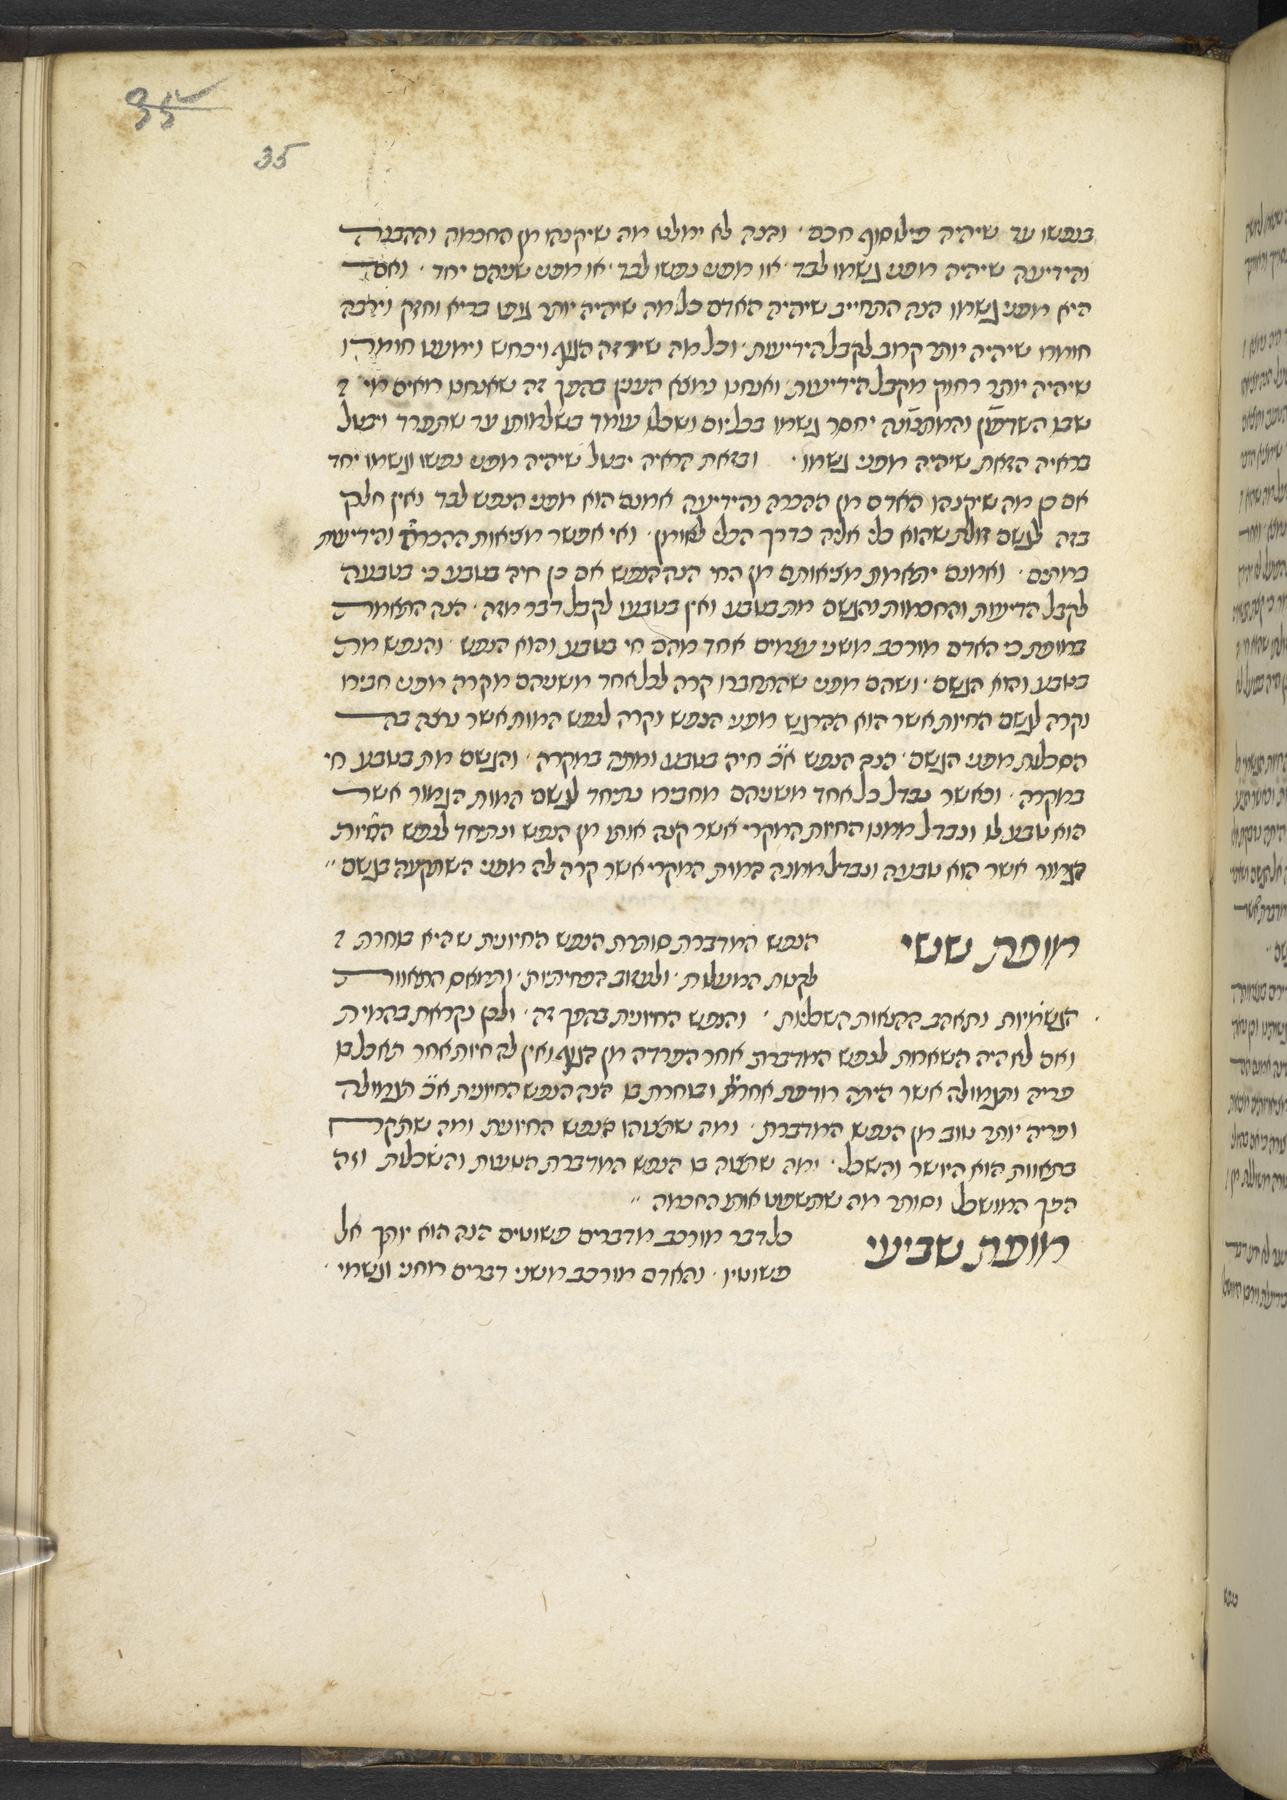 35
35
בנפשו עד שיהיה פילוסוף חכם · והנה לא ימלט מה שיקנהו מן החכמה וההבנה
והידיעה שיהיה מפני גשמו לבד · או מפני נפשו לבד · או מפני שניהם יחד · ואם
היא מפני גשמו הנה התחייב שיהיה האדם כל מה שיהיה יותר בריא וחזק וירבה
חומרו שיהיה יותר קרוב לקבל הידיעות · וכל מה שירזה הגוף ויכחש וימעט חומרו
שיהיה יותר רחוק מקבל הידיעות · ואנחנו נמצא הענין בהפך זה שאנחנו רואים מי
שבו השדפון יחסר גשמו בכל יום ושכלו עומד בשלמותו עד שתפרד ויבטל
בראיה הזאת שיהיה מפני גשמו · ובזאת הראיה יבטל שיהיה מפני נפשו וגשמו יחד
אם כן מה שיקנהו האדם מן ההכרה והידיעה אמנם הוא מפני הנפש לבד ואין חלק
בזה לגשם זולת שהוא כלי אליה כדרך הכלי לאומן · ואי אפשר מציאות ההכרה והידיעות
במתים · ואמנם יתאמת מציאותם מן החי הנה הנפש אם כן חיה בטבע כי בטבעה
לקבל הדיעות והחכמות והגשם מת בטבע ואין בטבעו לקבל דבר מזה · הנה התאמת
במופת כי האדם מורכב משני עצמים אחד מהם חי בטבע והוא הנפש · והנפש מת
בטבע והוא הגשם · ושהם מפני שהתחברו קרה לכל אחד משניהם מקרה מפני חבירו
וקרה לגשם החיות אשר הוא ההרגש מפני הנפש וקרה לנפש המות אשר נרצה בה
הסכלות מפני הגשם · הנה הנפש א״כ חיה בטבע ומתה במקרה · והגשם מת בטבע חי
במקרה · וכאשר נבדל כל אחד משניהם מחבירו נתיחד לגשם המות הגמור אשר
הוא טבע לו ונבדל ממנו החיות המקרי אשר קנה אותו מן הנפש ונתיחד לנפש החיות
הגמור אשר הוא טבעה ונבדל ממנה המות המקרי אשר קרה לה מפני השתקעה בגשם ״
מופת ששי הנפש המדברת סותרת הנפש החיונית שהיא בוחרת
לקנות המעלות · ולעזוב הפחיתיות · ותמאס התאוות
הגשמיות ותאהב ההנאות השכליות · והנפש החיונית בהפך זה · ולכן נקראת בהמית
ואם לא היה השארות לנפש המדברת אחר הפרדה מן הגוף ואין לה חיות אחר תאכל בו
פריה והגמולה אשר היתה רודפת אחריה ובוחרת בו הנה הנפש החיונית א״כ הגמולה
ופריה יותר טוב מן הנפש המדברת · ומה שתצוהו הנפש החיונית ומה שתקח
בתאוות הוא היושר והשכל · ומה שתצוה בו הנפש המדברת הטעות והשכלות וזה
הפך המושכל וסותר מה שתשפוט אותו החכמה ״
מופת שביעי כל דבר מורכב מדברים פשוטים הנה הוא יותך אל
פשוטיו · והאדם מורכב משני דברים רוחני וגשמי ·